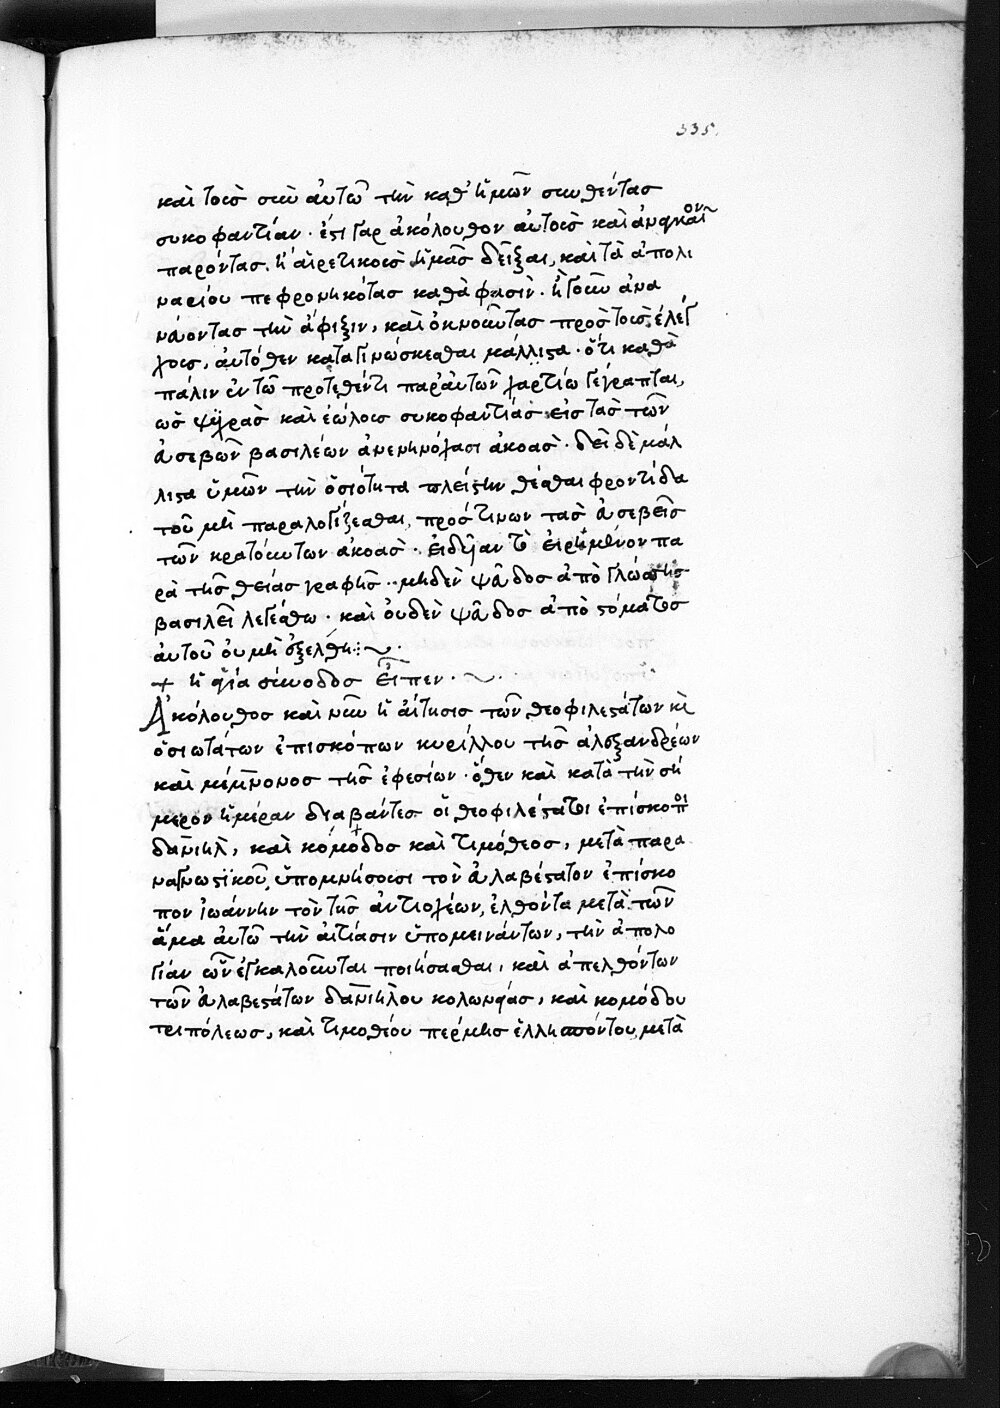 335
καὶ τοὺς σὺν αὐτῶ τὴν καθ' ἡμῶν συνθέντας
συκοφαντίαν. ἔστι γὰρ ἀκόλουθον αὐτοὺς καὶ ἀναγκαῖον
παρόντας, ἢ αἱρετικοὺς ἡμᾶς δεῖξαι, καὶ τὰ ἀπολι
ναρίου πεφρονηκότας καθά φασιν. ἢ γοῦν ἀνα
νεύοντας τὴν ἄφιξιν, καὶ ὀκνοῦντας πρὸς τοὺς ἐλέγ
χους, αὐτόθεν καταγινώσκεσθαι μάλλιστα. ὅτι καθὰ
πάλιν ἐν τῶ προτεθέντι παρ' αὐτῶν χαρτίω γέγραπται,
ὡς ψυχρὰς καὶ ἑώλους συκοφαντίας εἰς τὰς τῶν
ἀσεβῶν βασιλέων ἀνενηνόχασι ἀκοάς. δεῖ δὲ μάλ
λιστα ὑμῶν τὴν ὁσιότητα πλείστην θέσθαι φροντίδα
τοῦ μὴ παραλογίζεσθαι, πρός τινων τὰς ἀσεβεῖς
τῶν κρατούντων ἀκοάς. εἰδυῖαν τὸ εἰρημένον πα
ρὰ τῆς θείας γραφῆς. μηδὲν ψεῦδος ἀπὸ γλώσσης
βασιλεῖ λεγέσθω. καὶ οὐδὲν ψεῦδος ἀπὸ στόματος
αὐτοῦ οὐ μὴ ἐξέλθη
+ ἡ ἁγία σύνοδος εἶπεν.
Ἀκόλουθος καὶ νῦν ἡ αἴτησις τῶν θεοφιλεστάτων καὶ
ὁσιωτάτων ἐπισκόπων κυρίλλου τῆς ἀλεξανδρέων
καὶ μέμνονος τῆς ἐφεσίων. ὅθεν καὶ κατὰ τὴν σή
μερον ἡμέραν διαβάντες οἱ θεοφιλέστατοι ἐπίσκοποι
δανιὴλ, καὶ κομόδος καὶ τιμόθεος, μετὰ παρα
ναγνωστικοῦ, ὑπομνήσουσι τὸν εὐλαβέστατον ἐπίσκο
πον ἰωάννην τὸν τῆς ἀντιοχέων, ἐλθόντα μετὰ τῶν
ἅμα αὐτῶ τὴν αἰτίασιν ὑπομεινάντων, τὴν ἀπολο
γίαν ὧν ἐγκαλοῦνται ποιήσασθαι, καὶ ἀπελθόντων
τῶν εὐλαβεστάτων δανιήλου κολωνείας, καὶ κομόδου
τριπόλεως, καὶ τιμοθέου τερμησ ἑλλησπόντου, μετὰ